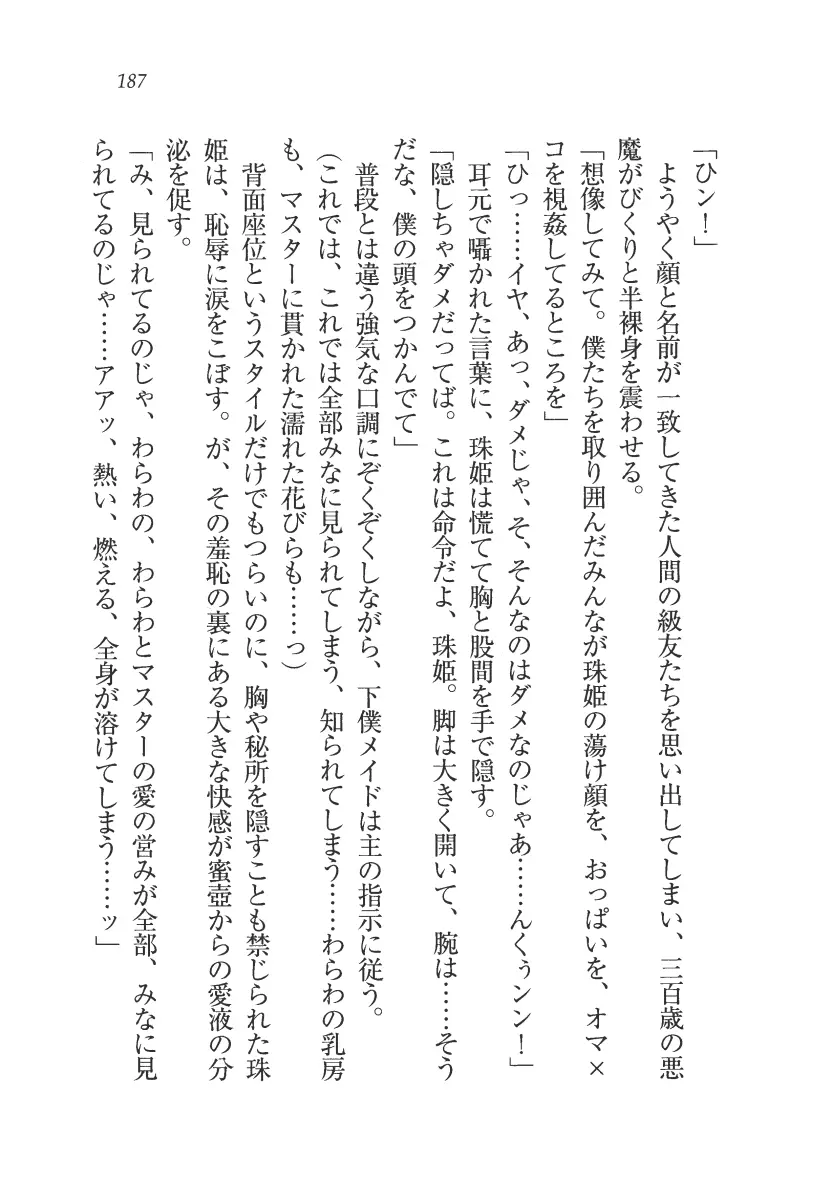 187
「ひン！」
　ようやく顔と名前が一致してきた人間の級友たちを思い出してしまい、三百歳の悪
魔がびくりと半裸身を震わせる。
「想像してみて。僕たちを取り囲んだみんなが珠姫の蕩け顔を、おっぱいを、オマ×
コを視姦してるところを」
「ひっ……イヤ、あっ、ダメじゃ、そ、そんなのはダメなのじゃあ……んくぅンン！」
　耳元で囁かれた言葉に、珠姫は慌てて胸と股間を手で隠す。
「隠しちゃダメだってば。これは命令だよ、珠姫。脚は大きく開いて、腕は……そう
だな、僕の頭をつかんでて」
　普段とは違う強気な口調にぞくぞくしながら、下僕メイドは主の指示に従う。
（これでは、これでは全部みなに見られてしまう、知られてしまう……わらわの乳房
も、マスターに貫かれた濡れた花びらも……っ）
　背面座位というスタイルだけでもつらいのに、胸や秘所を隠すことも禁じられた珠
姫は、恥辱に涙をこぼす。が、その羞恥の裏にある大きな快感が蜜壺からの愛液の分
泌を促す。
「み、見られてるのじゃ、わらわの、わらわとマスターの愛の営みが全部、みなに見
られてるのじゃ……アアッ、熱い、燃える、全身が溶けてしまう……ッ」